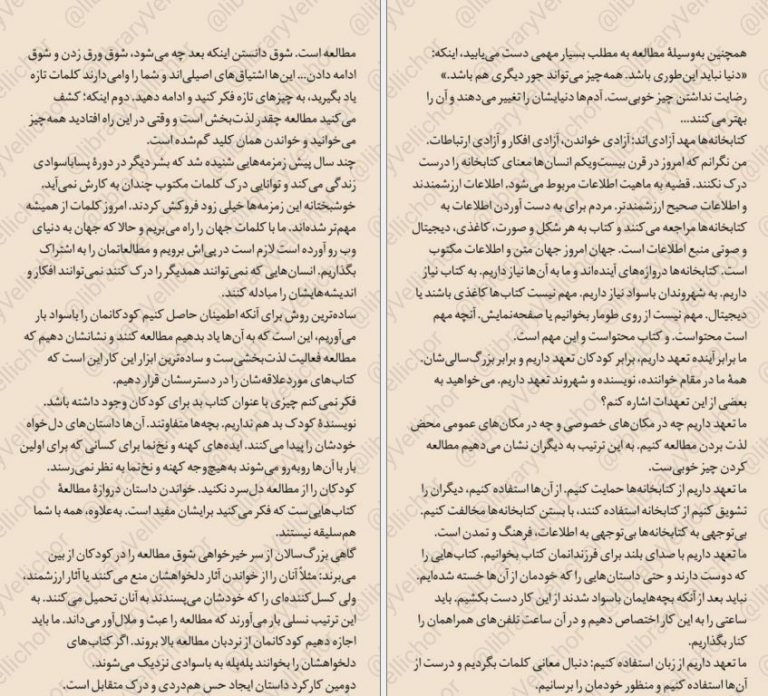 همچنین به‌وسیلهٔ مطالعه به مطلب بسیار مهمی دست می‌یابید، اینکه:
«دنیا نباید این‌طوری باشد. همه‌چیز می‌تواند جور دیگری هم باشد.»
رضایت نداشتن چیز خوبی‌ست. آدم‌ها دنیایشان را تغییر می‌دهند و آن را
بهتر می‌کنند...
کتابخانه‌ها مهد آزادی‌اند: آزادی خواندن، آزادی افکار و آزادی ارتباطات.
من نگرانم که امروز در قرن بیست‌ویکم انسان‌ها معنای کتابخانه را درست
درک نکنند. قضیه به ماهیت اطلاعات مربوط می‌شود. اطلاعات ارزشمندند
و اطلاعات صحیح ارزشمندتر. مردم برای به دست آوردن اطلاعات به
کتابخانه‌ها مراجعه می‌کنند و کتاب به هر شکل و صورت، کاغذی، دیجیتال
و صوتی منبع اطلاعات است. جهان امروز جهان متن و اطلاعات مکتوب
است. کتابخانه‌ها دروازه‌های آینده‌اند و ما به آن‌ها نیاز داریم. به کتاب نیاز
داریم. به شهروندان باسواد نیاز داریم. مهم نیست کتاب‌ها کاغذی باشند یا
دیجیتال. مهم نیست از روی طومار بخوانیم یا صفحه‌نمایش. آنچه مهم
است محتواست. و کتاب محتواست و این مهم است.
ما برابر آینده تعهد داریم، برابر کودکان تعهد داریم و برابر بزرگ‌سالی‌شان.
همهٔ ما در مقام خواننده، نویسنده و شهروند تعهد داریم. می‌خواهید به
بعضی از این تعهدات اشاره کنم؟
ما تعهد داریم چه در مکان‌های خصوصی و چه در مکان‌های عمومی محض
لذت بردن مطالعه کنیم. به این ترتیب به دیگران نشان می‌دهیم مطالعه
کردن چیز خوبی‌ست.
ما تعهد داریم از کتابخانه‌ها حمایت کنیم. از آن‌ها استفاده کنیم، دیگران را
تشویق کنیم از کتابخانه استفاده کنند، با بستن کتابخانه‌ها مخالفت کنیم.
بی‌توجهی به کتابخانه‌ها بی‌توجهی به اطلاعات، فرهنگ و تمدن است.
ما تعهد داریم با صدای بلند برای فرزندانمان کتاب بخوانیم. کتاب‌هایی را
که دوست دارند و حتی داستان‌هایی را که خودمان از آن‌ها خسته شده‌ایم.
نباید بعد از آنکه بچه‌هایمان باسواد شدند از این کار دست بکشیم. باید
ساعتی را به این کار اختصاص دهیم و در آن ساعت تلفن‌های همراهمان را
کنار بگذاریم.
ما تعهد داریم از زبان استفاده کنیم: دنبال معانی کلمات بگردیم و درست از
آن‌ها استفاده کنیم و منظور خودمان را برسانیم.
مطالعه است. شوق دانستن اینکه بعد چه می‌شود، شوق ورق زدن و شوق
ادامه دادن... این‌ها اشتیاق‌های اصلی‌اند و شما را وامی‌دارند کلمات تازه
یاد بگیرید، به چیزهای تازه فکر کنید و ادامه دهید. دوم اینکه؛ کشف
می‌کنید مطالعه چقدر لذت‌بخش است و وقتی در این راه افتادید همه‌چیز
می‌خوانید و خواندن همان کلید گم‌شده است.
چند سال پیش زمزمه‌هایی شنیده شد که بشر دیگر در دورهٔ پساباسوادی
زندگی می‌کند و توانایی درک کلمات مکتوب چندان به کارش نمی‌آید.
خوشبختانه این زمزمه‌ها خیلی زود فروکش کردند. امروز کلمات از همیشه
مهم‌تر شده‌اند. ما با کلمات جهان را راه می‌بریم و حالا که جهان به دنیای
وب رو آورده است لازم است در پی‌اش برویم و مطالعاتمان را به اشتراک
بگذاریم. انسان‌هایی که نمی‌توانند همدیگر را درک کنند نمی‌توانند افکار و
اندیشه‌هایشان را مبادله کنند.
ساده‌ترین روش برای آنکه اطمینان حاصل کنیم کودکانمان را باسواد بار
می‌آوریم، این است که به آن‌ها یاد بدهیم مطالعه کنند و نشانشان دهیم که
مطالعه فعالیت لذت‌بخشی‌ست و ساده‌ترین ابزار این کار این است که
کتاب‌های موردعلاقه‌شان را در دسترسشان قرار دهیم.
فکر نمی‌کنم چیزی با عنوان کتاب بد برای کودکان وجود داشته باشد.
نویسندهٔ کودک بد هم نداریم. بچه‌ها متفاوتند. آن‌ها داستان‌های دل‌خواه
خودشان را پیدا می‌کنند. ایده‌های کهنه و نخ‌نما برای کسانی که برای اولین
بار با آن‌ها روبه‌رو می‌شوند به‌هیچ‌وجه کهنه و نخ‌نما به نظر نمی‌رسند.
کودکان را از مطالعه دل‌سرد نکنید. خواندن داستان دروازهٔ مطالعهٔ
کتاب‌هایی‌ست که فکر می‌کنید برایشان مفید است. به‌علاوه، همه با شما
هم‌سلیقه نیستند.
گاهی بزرگ‌سالان از سر خیرخواهی شوق مطالعه را در کودکان از بین
می‌برند: مثلاً آنان را از خواندن آثار دلخواهشان منع می‌کنند یا آثار ارزشمند،
ولی کسل‌کننده‌ای را که خودشان می‌پسندند به آنان تحمیل می‌کنند. به
این ترتیب نسلی بار می‌آورند که مطالعه را عبث و ملال‌آور می‌داند. ما باید
اجازه دهیم کودکانمان از نردبان مطالعه بالا بروند. اگر کتاب‌های
دلخواهشان را بخوانند پله‌پله به باسوادی نزدیک می‌شوند.
دومین کارکرد داستان ایجاد حس هم‌دردی و درک متقابل است.
@libraryVellichor